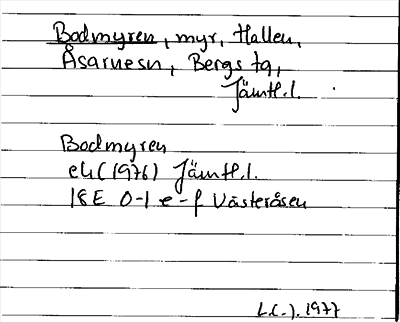 Bodmyren, myr, Hallen,
Åsarnesn, Bergs tg,
Jämtl.l.
Bodmyren
ek (1976) Jämtl.l.
18E 0-1 e-f Västeråsen
L.(-). 1977